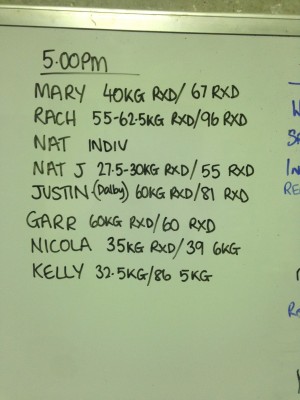 5.00pm
MARY 40KG RXD/ 67 RXD
RACH 55-62.5KG RXD/96 RXD
NAT INDIV
NAT J 27.5-30KG RXD/ 55 RXD
JUSTIN (Dalby) 60KG RXD/81 RXD
GARR 60KG RXD/60 RXD
NICOLA 35KG RXD/39 6KG
KELLY 32.5KG/86 5KG